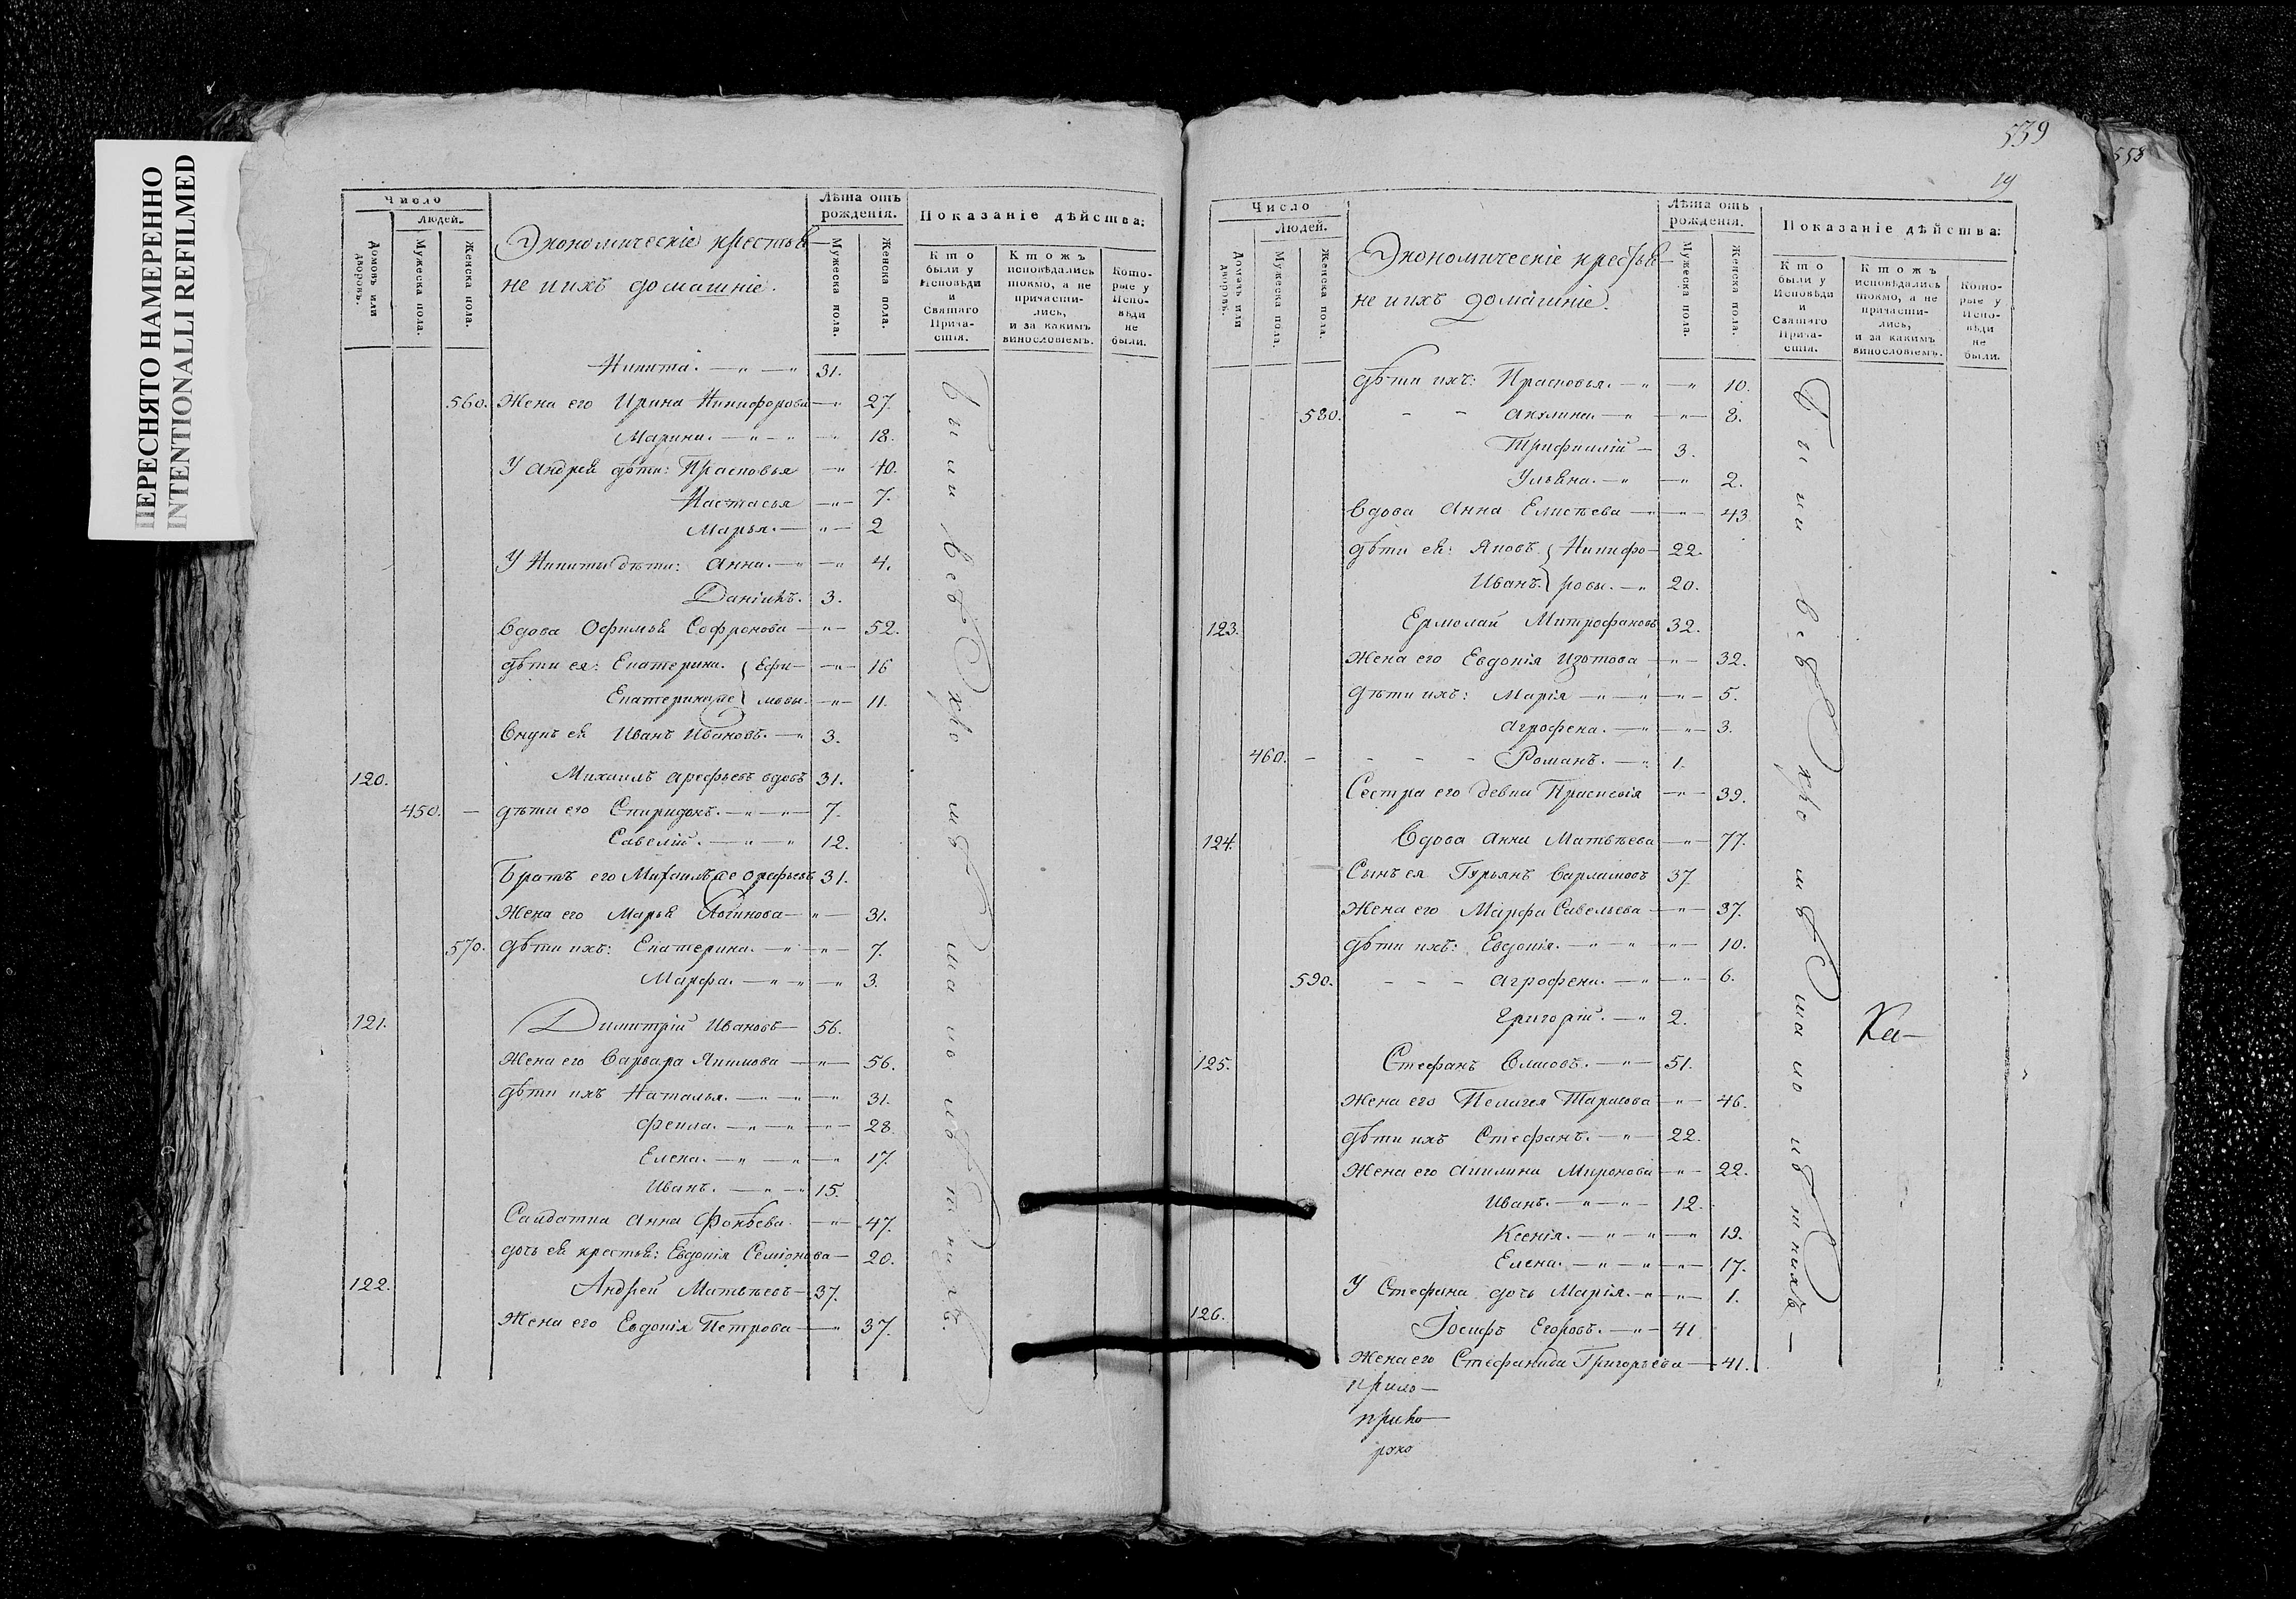 ПЕРЕСНЯТО НАМЕРЕННО
INTENTIONALLI REFILMED
Число
Людей.
Домовъ или дворовъ.
Мужеска пола.
Женска пола.
Экономическіе крестья-
не и ихъ домашніе.
Лѣта отъ рожденія.
Мужеска пола.
Женска пола.
Показаніе дѣйства:
Кто были у Исповѣди и Святаго Прича-стія.
Ктожъ исповѣдались токмо, а не причасти-лись, и за какимъ винословіемъ.
Кото-рые у Испо-вѣди не были.
Никита. — " — " 31.
560. Жена его Ирина Никифорова — " 27.
Марина. — " — " — " 18.
У Андрея дѣти: Прасковья — " 10.
Настасья — " — 7.
Марья. — " — 2
У Никиты дѣти: Анна. — " — " 4.
Даніилъ. 3.
Вдова Офимья Софронова — " — 52.
дѣти ея: Екатерина. { Ефи- — " — 16
Екатерина же } мовы. — " — 11.
Внукъ ея Иванъ Ивановъ. — " 3.
120. Михаилъ Арефьевъ вдовъ 31.
450. — дѣти его Спиридонъ. — " — " — 7.
Савелій. — " — " 12.
Братъ его Михаилъ же Арефьевъ 31.
Жена его Марья Логинова — " — 31.
570. дѣти ихъ: Екатерина. — " — " — 7.
Марфа. — " — " — " 3.
121. Димитрій Ивановъ — 56.
Жена его Варвара Якимова — " — 56.
дѣти ихъ Наталья. — " — " — " 31.
Фекла. — " — " — " — 28.
Елена. — " — " — " 17.
Иванъ. — " — " 15.
Салдатка Анна Фокѣева. — " — 47.
дочь ея крестья: Евдокія Семіонова — 20.
122. Андрей Матвѣевъ — 37.
Жена его Евдокія Петрова — " 37.
были всѣ
539
558
19
Число
Людей.
Домовъ или дворовъ.
Мужеска пола.
Женска пола.
Экономическіе крестья-
не и ихъ домашніе.
Лѣта отъ рожденія.
Мужеска пола.
Женска пола.
Показаніе дѣйства:
Кто были у Исповѣди и Святаго Прича-стія.
Ктожъ исповѣдались токмо, а не причасти-лись, и за какимъ винословіемъ.
Кото-рые у Испо-вѣди не были.
дѣти ихъ: Прасковья. — " — " 10.
580. - - Акулина. — " — " — 8.
Трифиллій — 3.
Ульяна. — " — " 2.
Вдова Анна Елисѣева — " — " — 43
дѣти ея: Яковъ. { Никифо- 22.
Иванъ. } ровы. — " 20.
123. Ермолай Митрофановъ 32.
Жена его Евдокія Изотова — " — 32.
дѣти ихъ: Марія — " — " — " — 5.
Агрофена. — " — " — 3.
460. - - - - Романъ. — " 1.
Сестра его девка Праскевія — " — 39.
124. Вдова Анна Матвѣева — " — 77.
Сынъ ея Гурьянъ Варламовъ 37.
Жена его Марфа Савельева — " — 37.
дѣти ихъ: Евдокія. — " — " — " — 10.
590. - - - Агрофена. — " — " — 6.
Григорій. — " 2.
125. Стефанъ — " — 51.
Жена его Пелагея Тарасова — " — 46.
дѣти ихъ Стефанъ. — " — 22.
Жена его Акилина Миронова — " — 22.
Иванъ. — " — " — 12.
Ксенія. — " — " — " 19.
Елена. — " — " — " — 17.
У Стефана дочь Марія. — " — " — 1.
126. Іосифъ Егоровъ. — " — 41
Жена его Стефанида Григорьева — 41.
были всѣ
Ка-